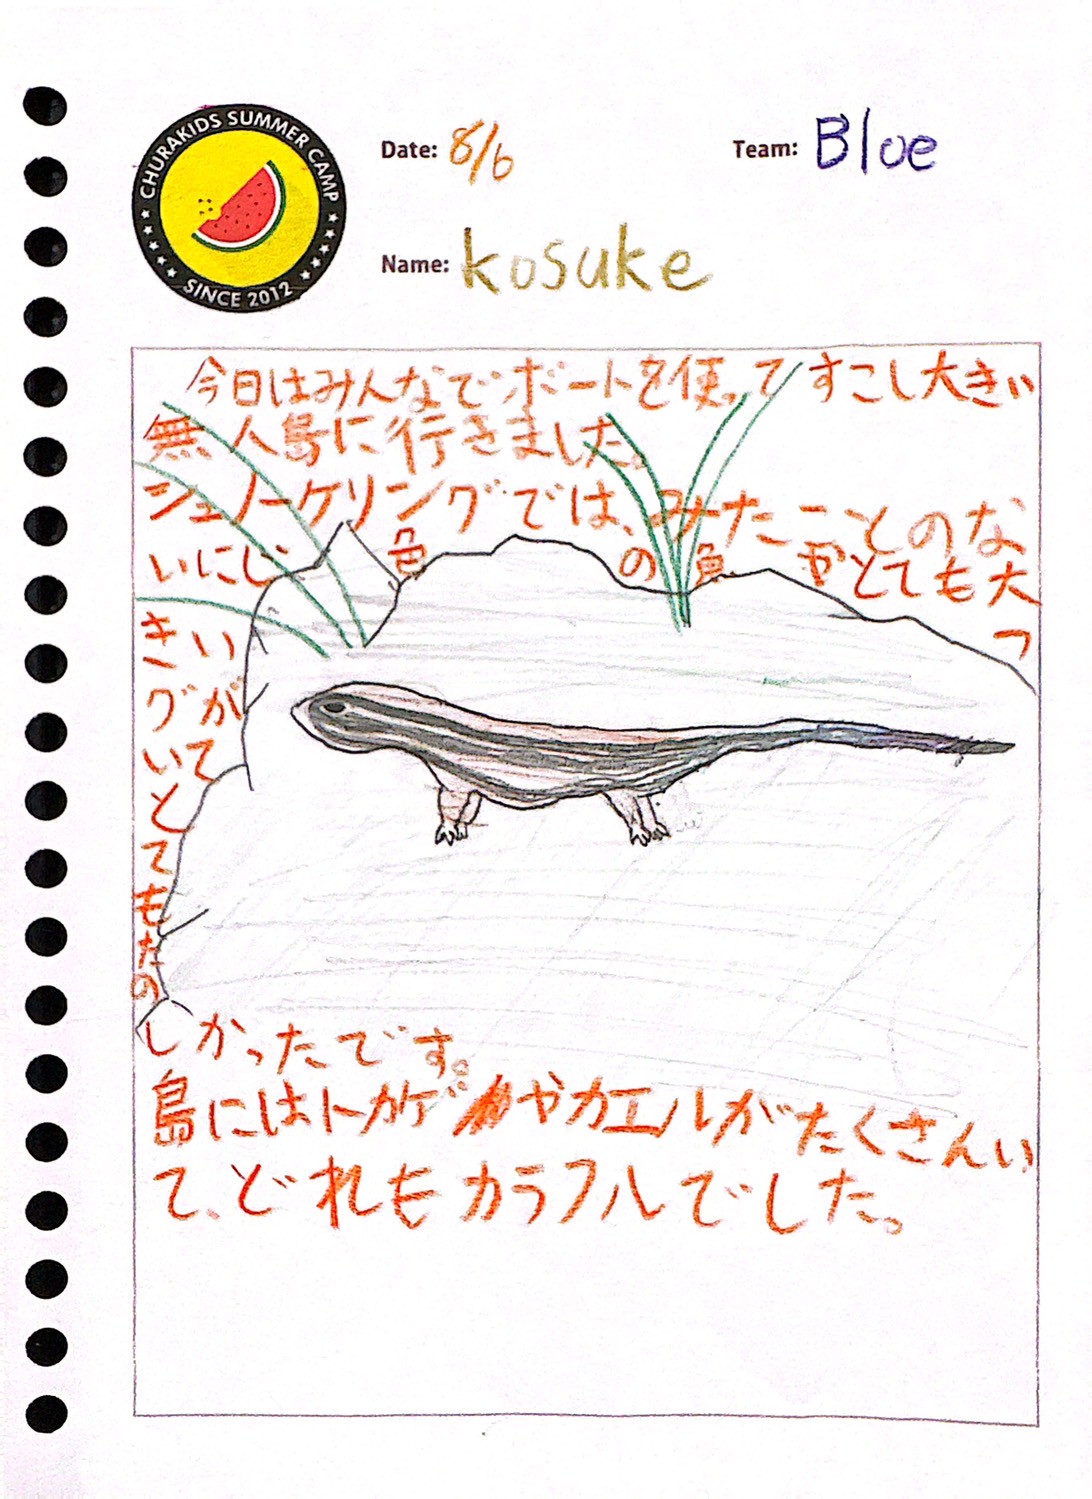 CHURAKIDS SUMMER CAMP
SINCE 2012
Date: 8/6
Team: Blue
Name: kosuke
今日はみんなでボートを使ってすこし大きい
無人島に行きました。
シュノーケリングでは、みたことのな
いにじ色の魚やとても大
きいフ
グが
いて
とて
もたの
しかったです。
島にはトカゲやカエルがたくさんい
て、どれもカラフルでした。